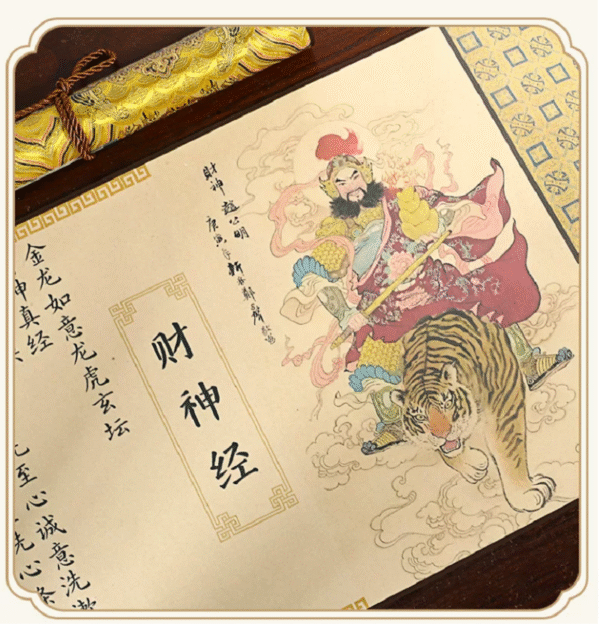 财神赵公明
庚寅年新春
财神经
金龙如意龙虎玄坛
神真经
至心诚意洗漱
洗心